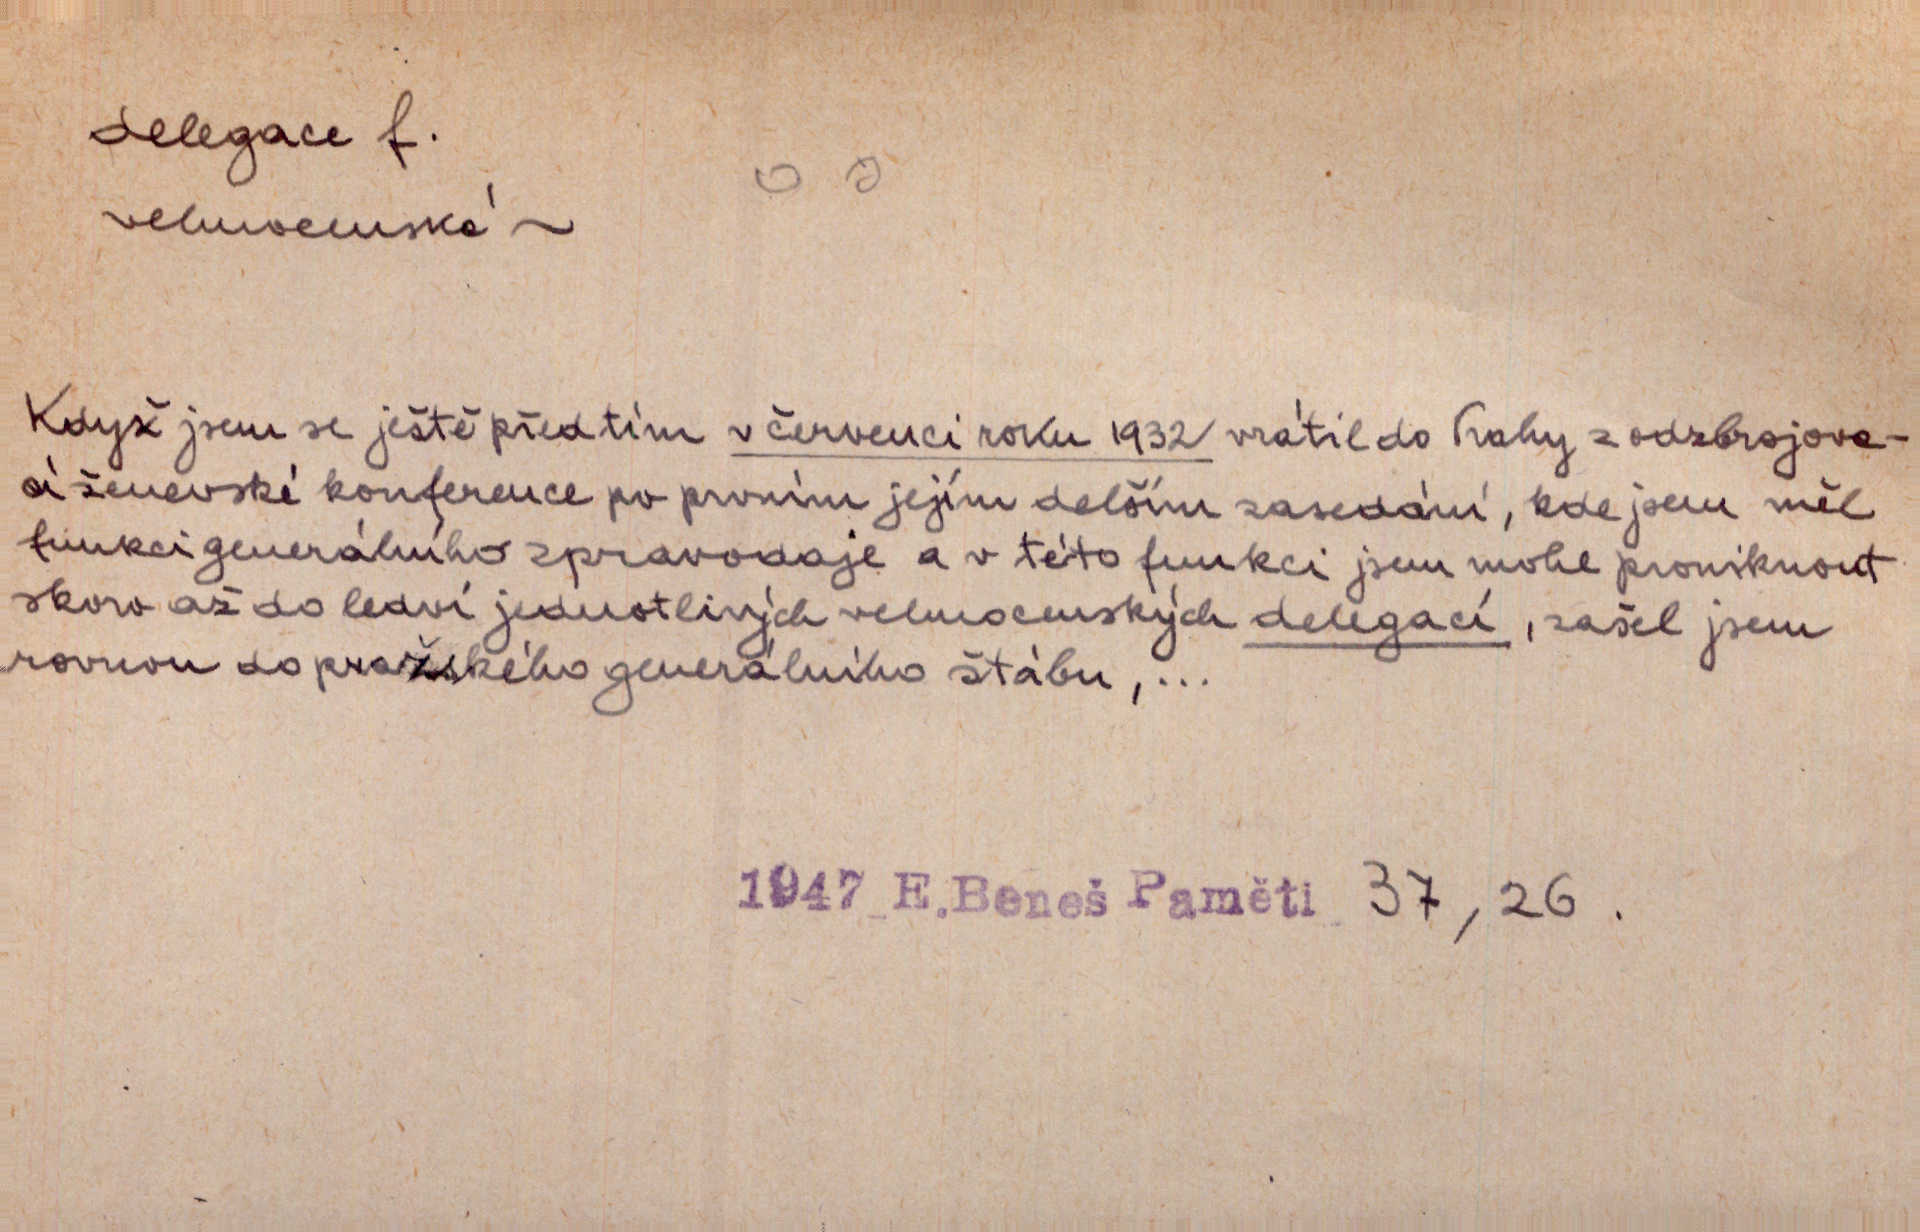 delegace f.
velmocenská ~
Když jsem se ještě předtím v červenci roku 1932 vrátil do Prahy z odzbrojova-
cí ženevské konference po prvním jejím delším zasedání, kde jsem měl
funkci generálního zpravodaje a v této funkci jsem mohl proniknout
skoro až do ledví jednotlivých velmocenských delegací, zašel jsem
rovnou do pražského generálního štábu, ...
1947 E. Beneš Paměti 37, 26.